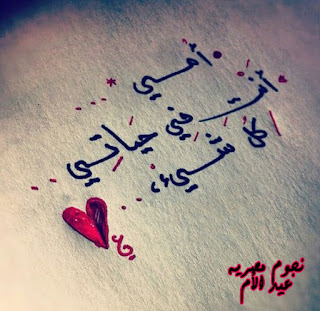 أمي
أنت في حياتي
كل شيء
نجوم مصريه
عيد الأم